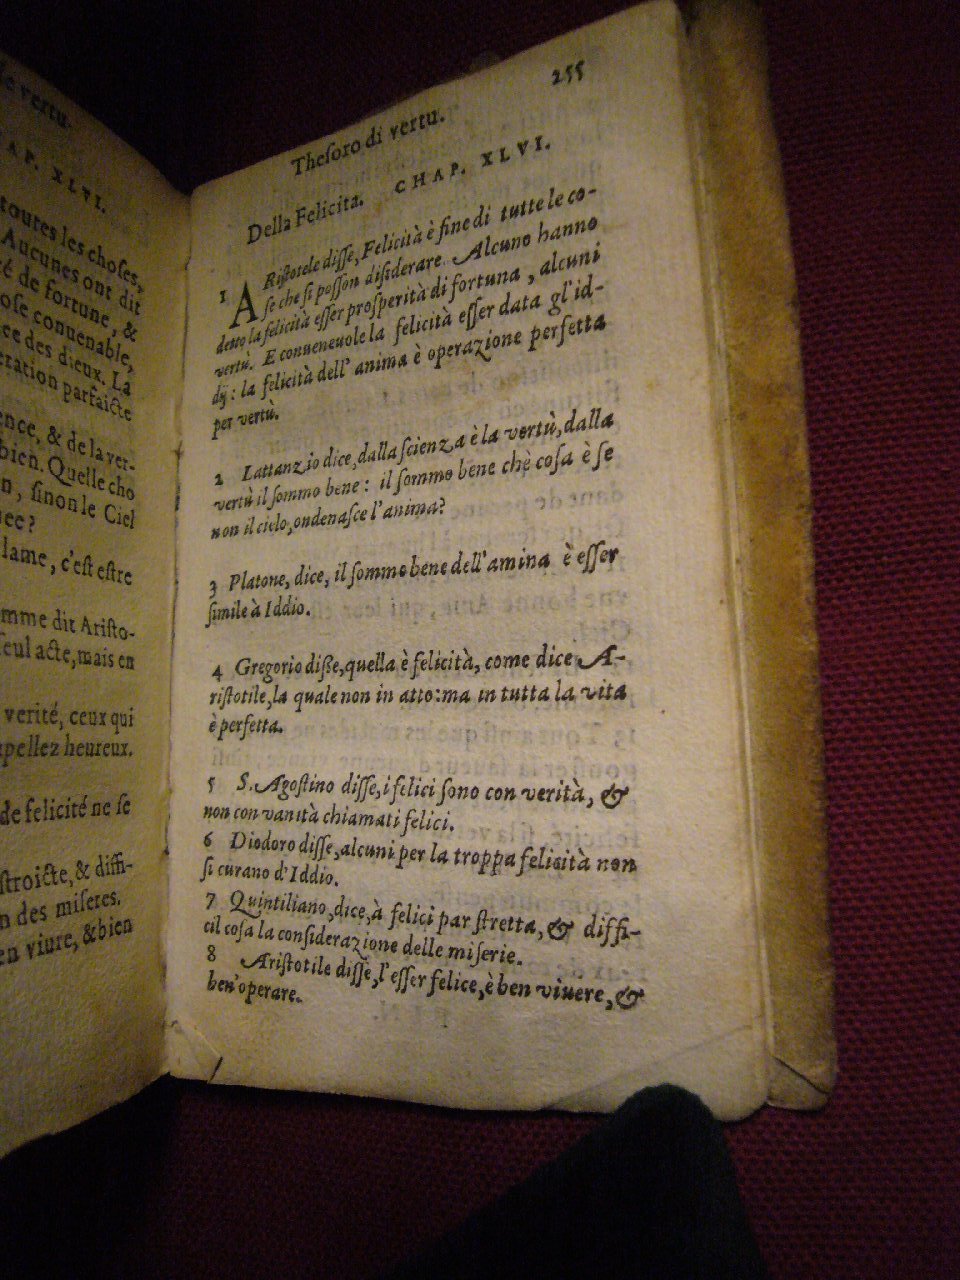 vertu.
AP. XLVI.
toutes les choſes,
Aucunes ont dit
é de fortune, &
oſe conuenable,
ce des dieux. La
eration parfaicte
ence, & de la ver-
bien. Quelle cho
n, ſinon le Ciel
nee?
lame, c'eſt eſtre
mme dit Ariſto-
ſeul acte, mais en
verité, ceux qui
pellez heureux.
de felicité ne ſe
ſtroicte, & diffi-
n des miſeres.
en viure, & bien
255
Theſoro di vertu.
Della Felicita. CHAP. XLVI.
1 ARiſtotele diſſe, Felicità è fine di tutte le co-
ſe che ſi poſſon diſiderare. Alcuno hanno
detto la felicità eſſer proſperità di fortuna, alcuni
vertù. E conueneuole la felicità eſſer data gl'id-
dij: la felicità dell' anima è operazione perfetta
per vertù.
2 Lattanzio dice, dalla ſcienza è la vertù, dalla
vertù il ſommo bene: il ſommo bene chè coſa è ſe
non il cielo, onde naſce l'anima?
3 Platone, dice, il ſommo bene dell'amina è eſſer
ſimile à Iddio.
4 Gregorio diſſe, quella è felicità, come dice A-
riſtotile, la quale non in atto: ma in tutta la vita
è perfetta.
5 S. Agoſtino diſſe, i felici ſono con verità, &
non con vanità chiamati felici.
6 Diodoro diſſe, alcuni per la troppa felicità non
ſi curano d'Iddio.
7 Quintiliano, dice, à felici par ſtretta, & diffi-
cil coſa la conſiderazione delle miſerie.
8 Ariſtotile diſſe, l'eſſer felice, è ben viuere, &
ben'operare.